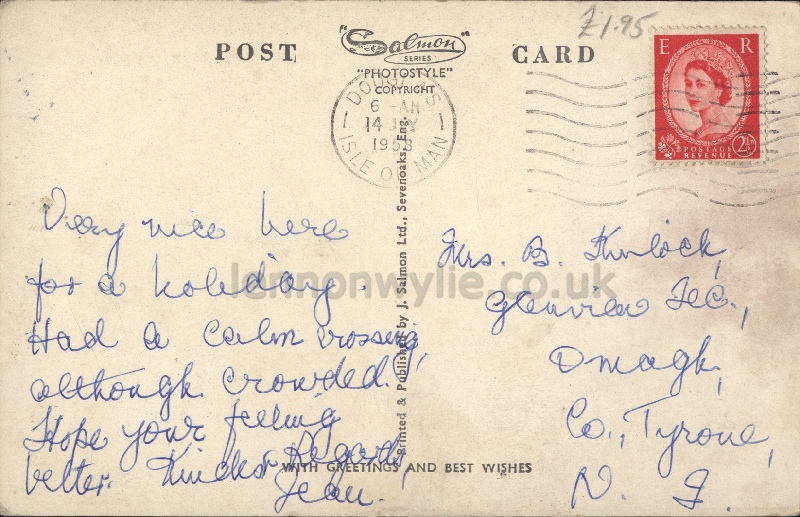 £1.95
POST
"Salmon"
SERIES
"PHOTOSTYLE"
COPYRIGHT
CARD
E R
POSTAGE
REVENUE
2½
DOUGLAS
6 - AM
14 JLY
1958
ISLE OF MAN
Very nice here
for a holiday.
Had a calm crossing,
although crowded.
Hope your feeling
better. Kindest Regards,
Jean.
Mrs. B.
Glenview Tec.,
Omagh,
Co., Tyrone,
N. I.
Printed & Published by J. Salmon Ltd., Sevenoaks, Eng.
WITH GREETINGS AND BEST WISHES
lennonwylie.co.uk